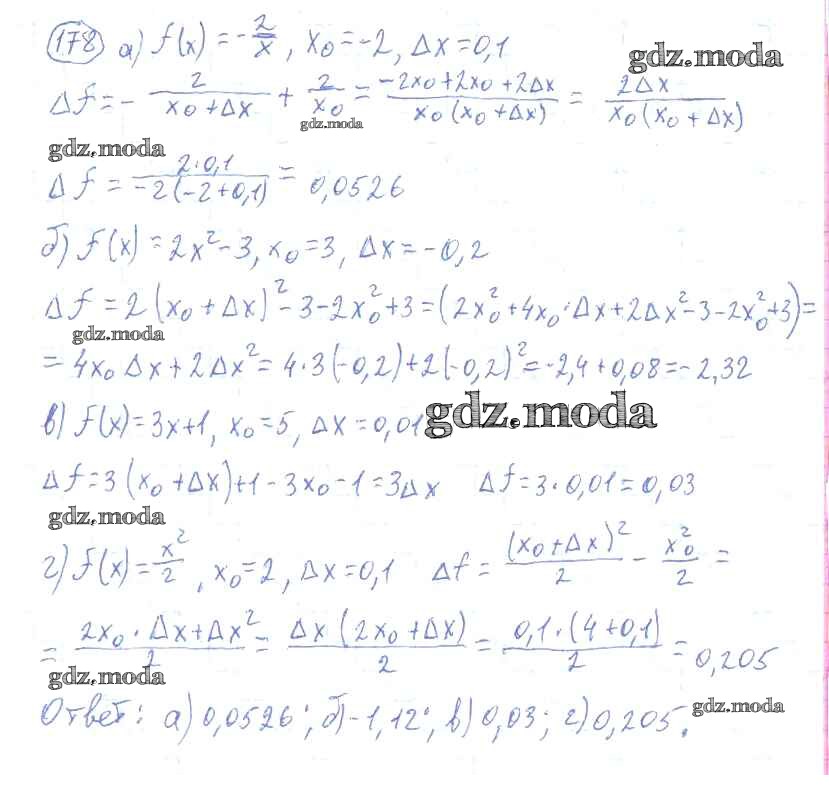 178 а) f(x) = -2/x, x₀ = -2, Δx = 0,1
gdz.moda
Δf = - 2/(x₀ + Δx) + 2/x₀ = (-2x₀ + 2x₀ + 2Δx)/(x₀(x₀ + Δx)) = 2Δx/(x₀(x₀ + Δx))
gdz.moda
gdz.moda
Δf = 2·0,1/(-2(-2+0,1)) = 0,0526
б) f(x) = 2x² - 3, x₀ = 3, Δx = -0,2
Δf = 2(x₀ + Δx)² - 3 - 2x₀² + 3 = (2x₀² + 4x₀·Δx + 2Δx² - 3 - 2x₀² + 3) =
gdz.moda
= 4x₀Δx + 2Δx² = 4·3(-0,2) + 2(-0,2)² = -2,4 + 0,08 = -2,32
в) f(x) = 3x+1, x₀ = 5, Δx = 0,01
gdz.moda
Δf = 3(x₀ + Δx) + 1 - 3x₀ - 1 = 3Δx Δf = 3·0,01 = 0,03
gdz.moda
г) f(x) = x²/2, x₀ = 2, Δx = 0,1 Δf = (x₀ + Δx)²/2 - x₀²/2 =
= (2x₀·Δx + Δx²)/2 = Δx(2x₀ + Δx)/2 = 0,1·(4+0,1)/2 = 0,205
gdz.moda
Ответ: а) 0,0526; б) -1,12; в) 0,03; г) 0,205.
gdz.moda